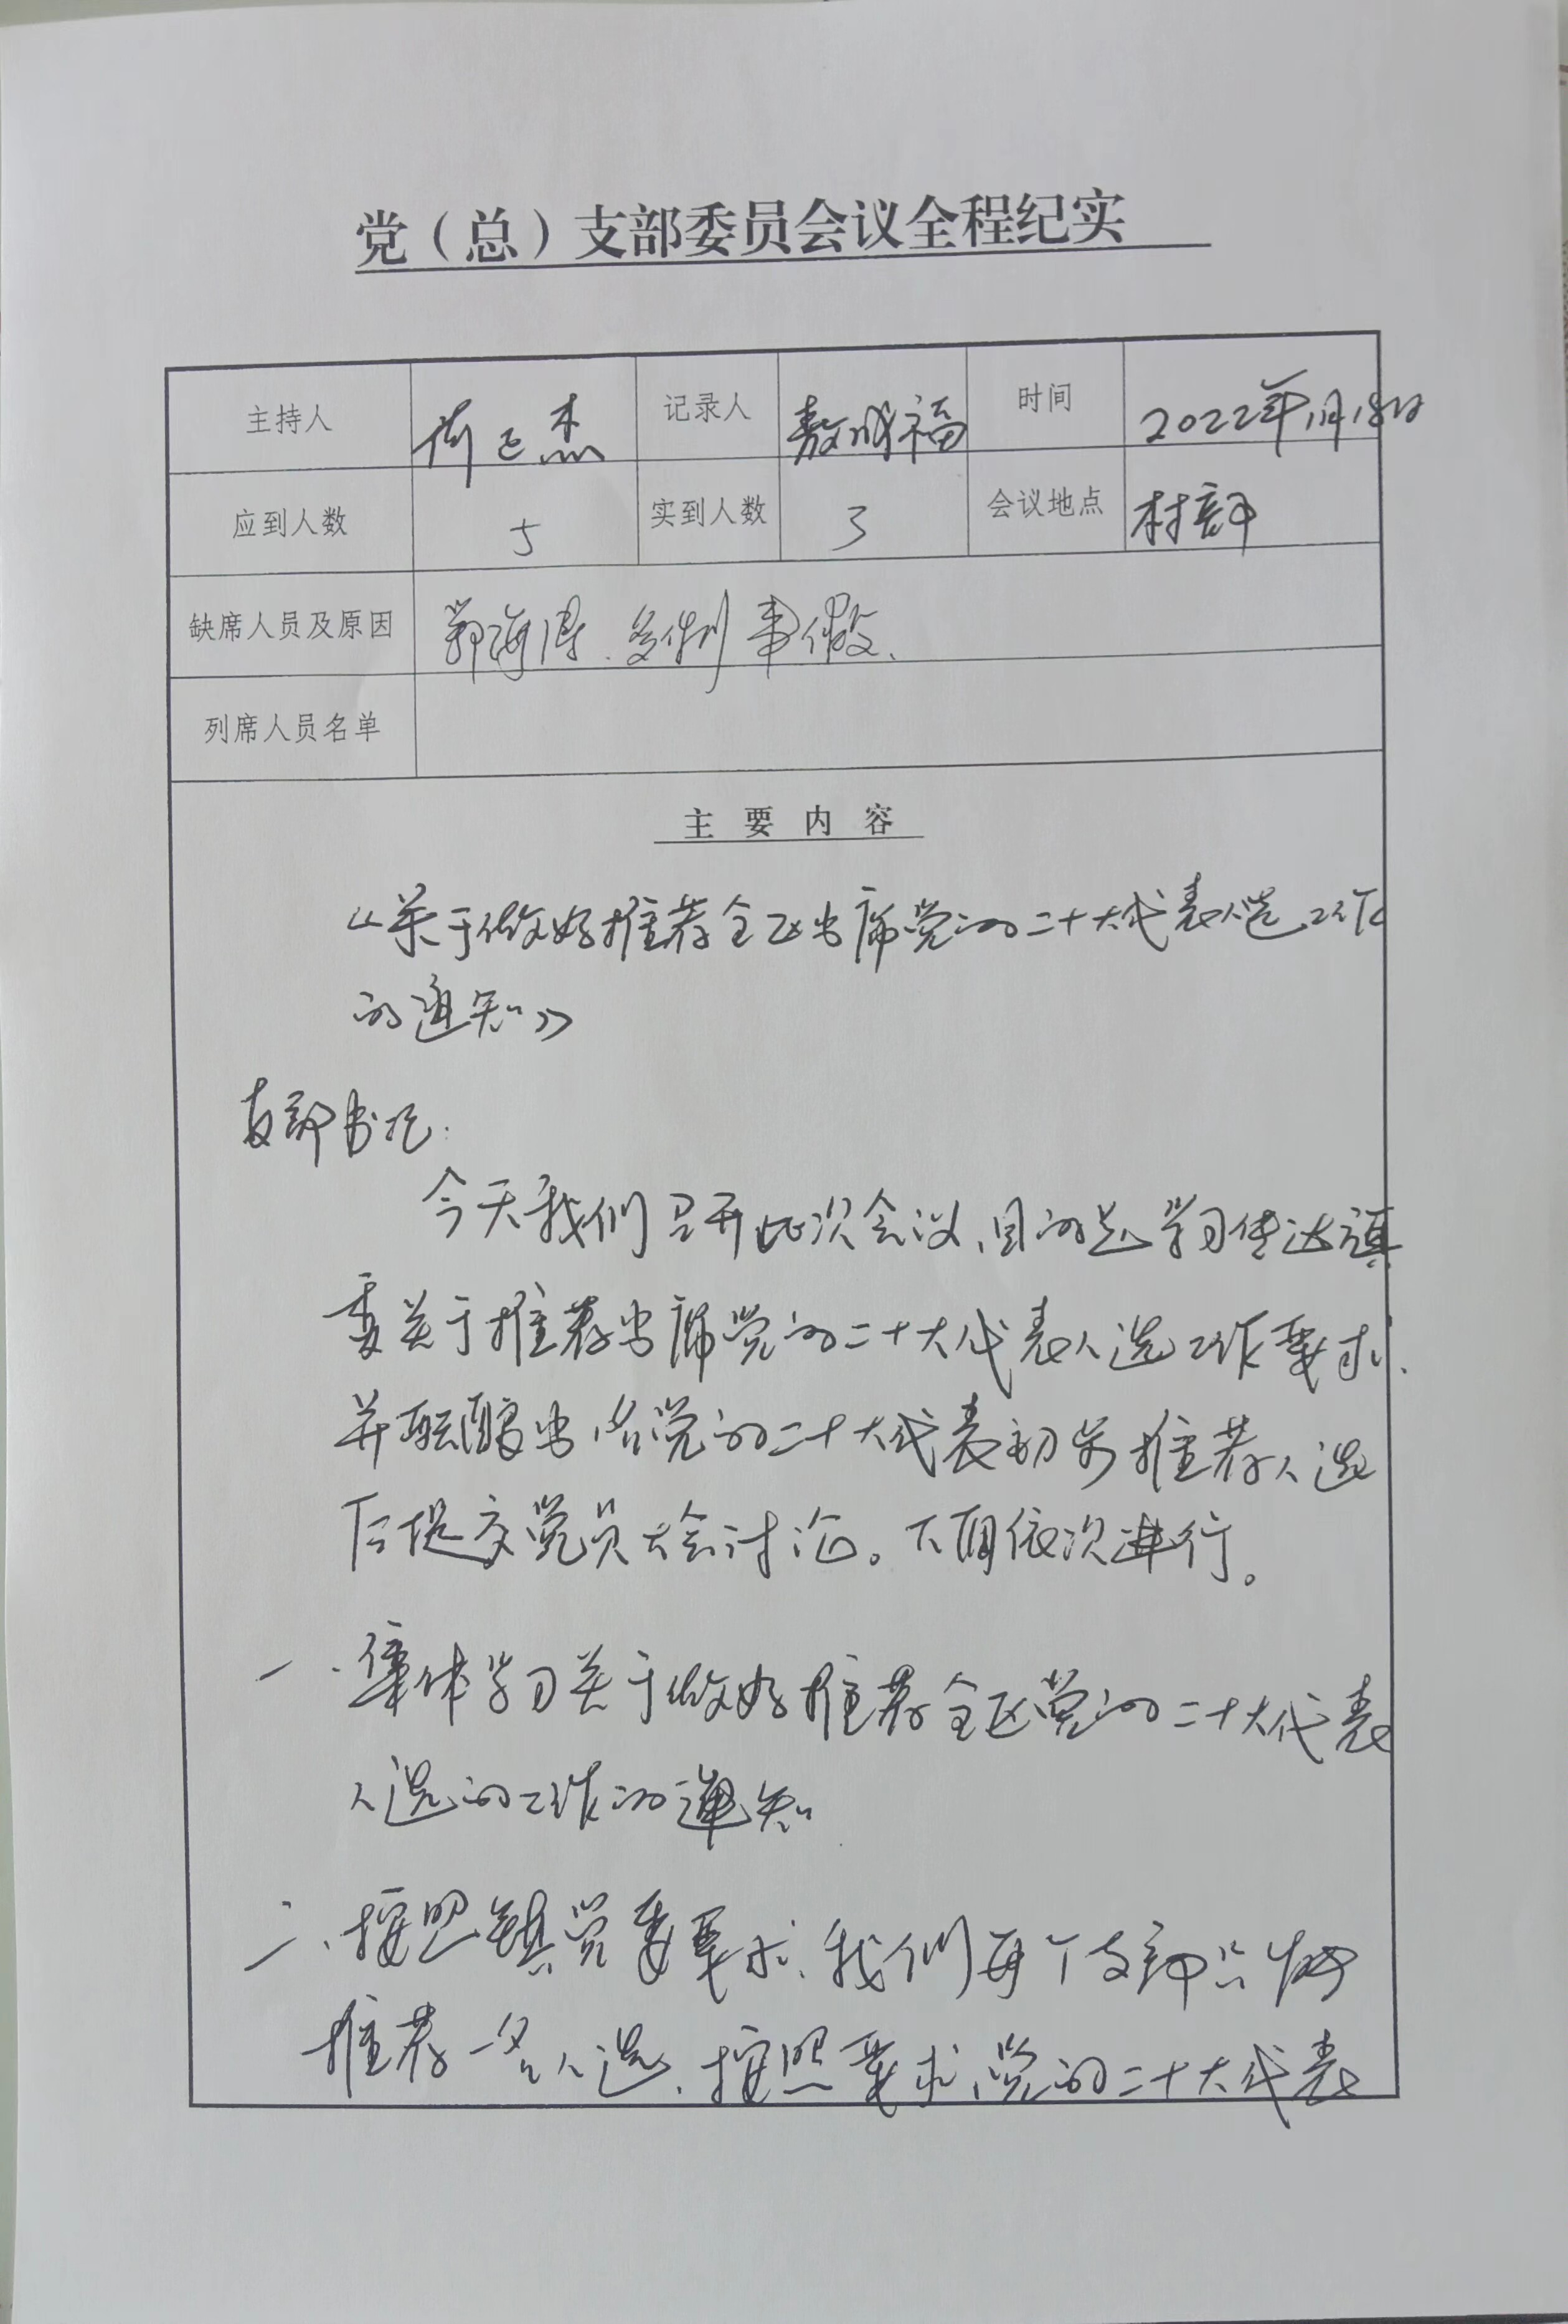 党（总）支部委员会议全程纪实
主持人 记录人 敖成福 时间 2022年1月18日
应到人数 5 实到人数 3 会议地点 村部
缺席人员及原因 郭海 事假、
列席人员名单
主要内容
《关于做好推荐全区出席党的二十大代表人选工作
的通知》
支部书记:
今天我们召开此次会议、目的是学习传达旗
委关于推荐出席党的二十大代表人选工作要求、
并酝酿出 党的二十大代表初步推荐人选
后提交党员大会讨论。下面依次进行。
一、集体学习关于做好推荐全区党的二十大代表
人选的工作的通知
二、按照镇党委要求、我们每个支部只能
推荐一名人选、按照要求、党的二十大代表